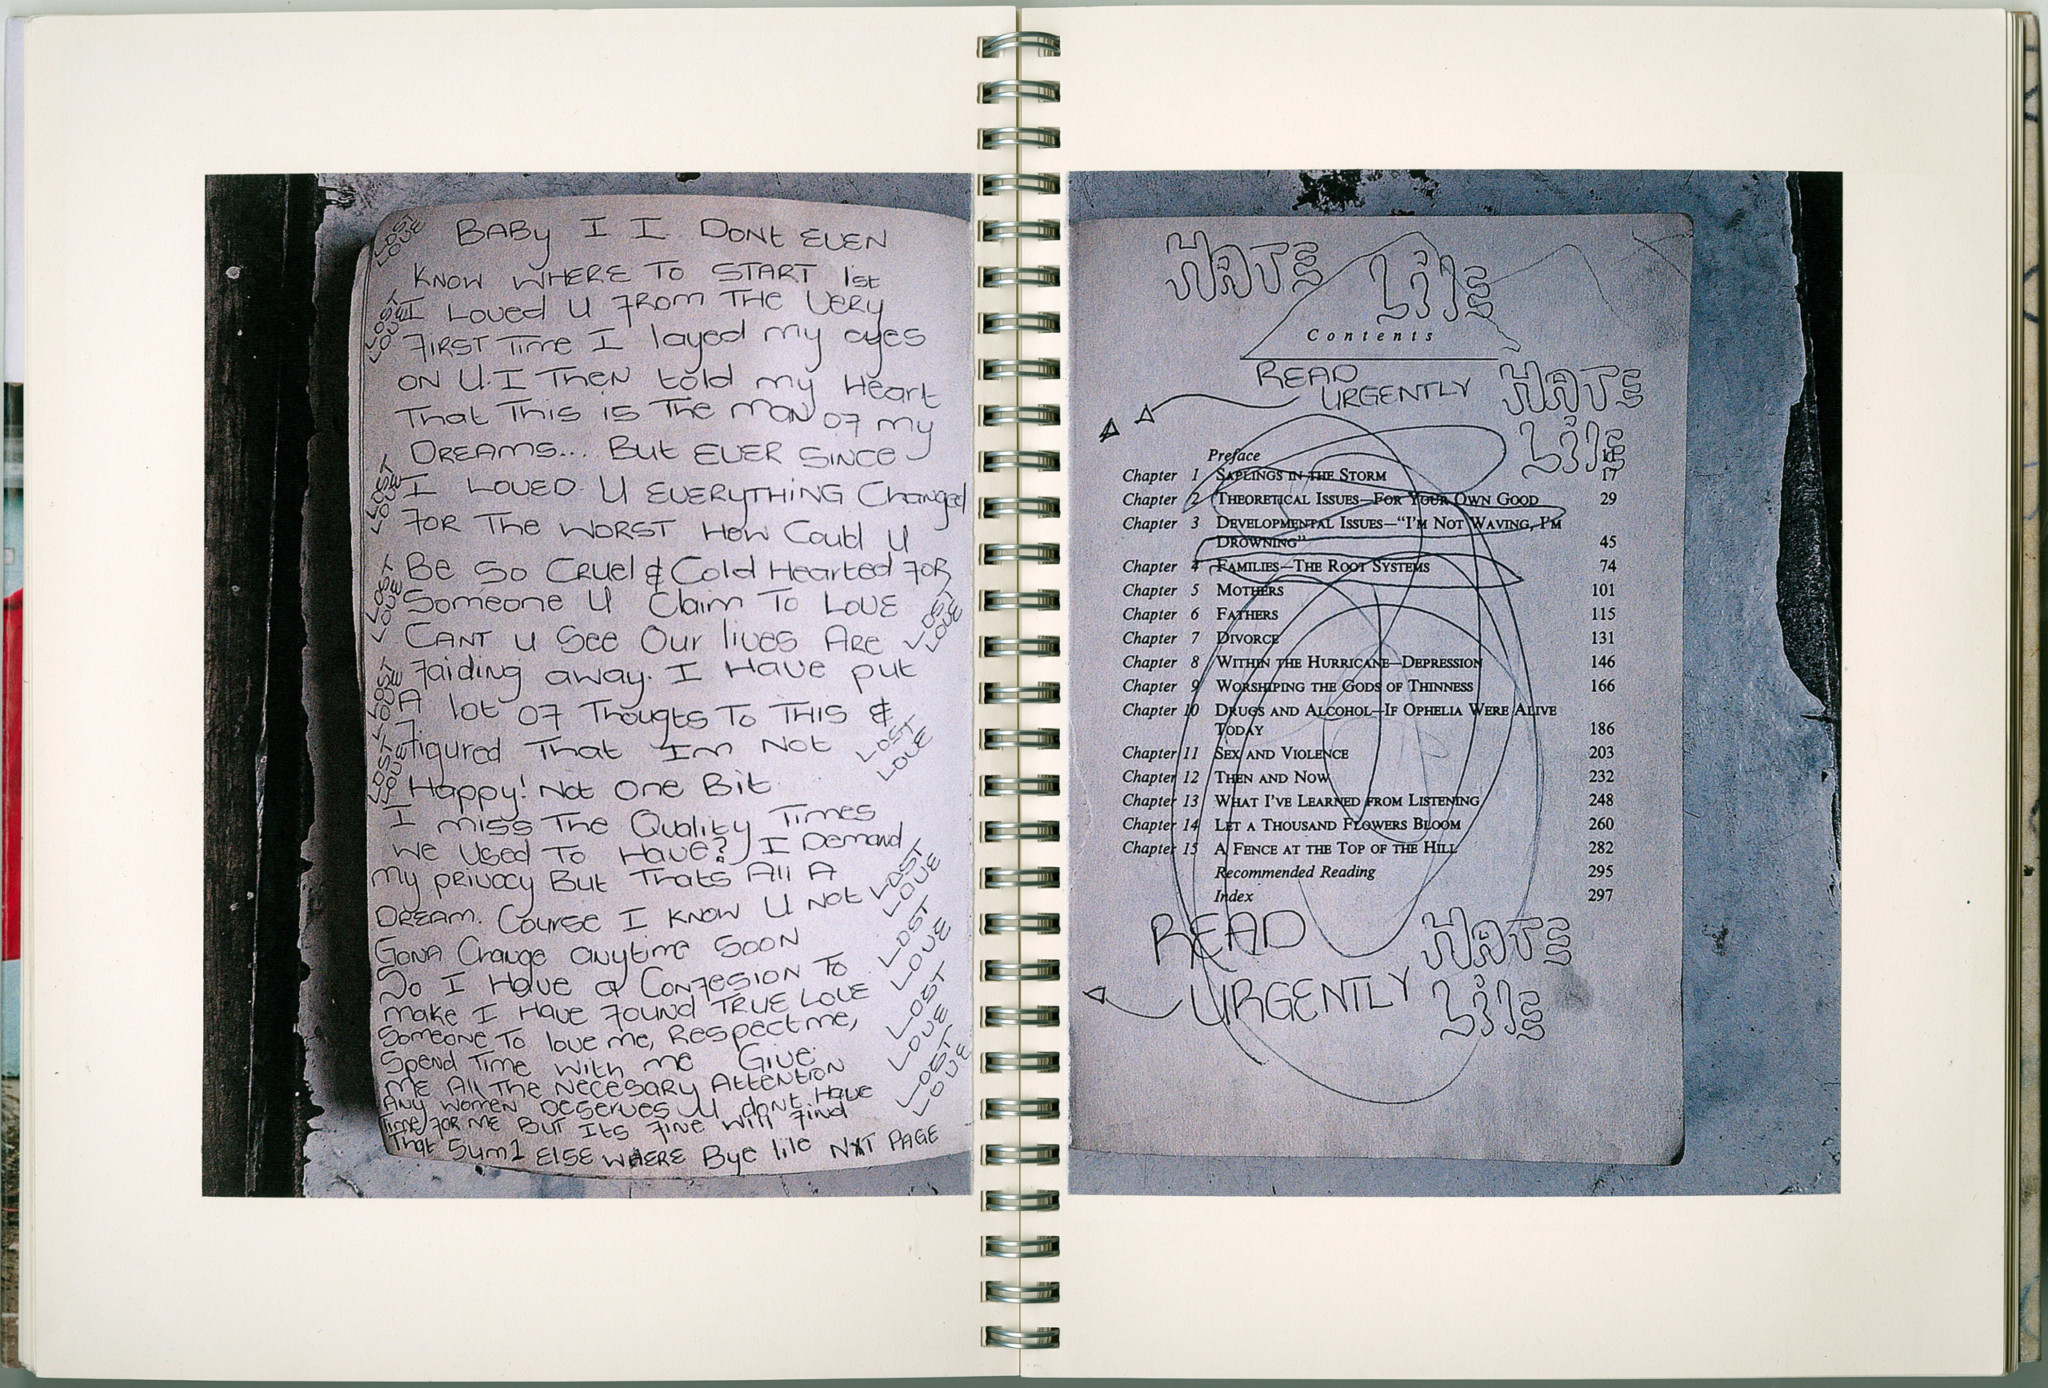 BABY I I DONT EVEN
KNOW WHERE TO START 1st
I LOVED U FROM THE VERY
FIRST TIME I layed my eyes
ON U. I THEN told my HEART
THAT THIS IS THE MAN OF my
DREAMS... BUT EVER SINCE
I LOVED U EVERYTHING Changed
FOR THE WORST HOW Could U
BE SO CRUEl & Cold HEARTED FOR
SOMEONE U Claim TO LOVE
CANT U SEE OUR lives ARE
Faiding away. I HAVE put
A lot OF THougts TO THIS &
Figured THAT Im NOT
Happy! NOT ONE BIT
I miss THE QUALITY TIMES
WE USED TO HAVE? I DEMAND
my privacy BUT THATS All A
DREAM. COURSE I KNOW U NOT
GONA Change anytime SOON
SO I HAVE a CONFESION TO
MAKE I HAVE FOUND TRUE LOVE
SOMEONE TO love me, RESPECT me,
SPEND TIME WITH me GIVE
ME All THE NECESARY ATTENTION
ANY WOMEN DESERVES U dONT HAVE
TIME FOR ME BUT ITS FINE WIll FIND
THAT SUM1 ELSE WHERE Bye lile NXT PAGE
LOST
LOVE
LOST
LOVE
LOST
LOVE
LOST
LOVE
LOST
LOVE
LOST
LOVE
LOST
LOVE
LOST
LOVE
LOST
LOVE
LOST
LOVE
LOST
LOVE
LOST
LOVE
HATE
LilE
Contents
READ
URGENTLY
HATE
LilE
Preface
Chapter 1 SAPLINGS IN THE STORM 17
Chapter 2 THEORETICAL ISSUES—FOR YOUR OWN GOOD 29
Chapter 3 DEVELOPMENTAL ISSUES—“I’M NOT WAVING, I’M
DROWNING” 45
Chapter 4 FAMILIES—THE ROOT SYSTEMS 74
Chapter 5 MOTHERS 101
Chapter 6 FATHERS 115
Chapter 7 DIVORCE 131
Chapter 8 WITHIN THE HURRICANE—DEPRESSION 146
Chapter 9 WORSHIPING THE GODS OF THINNESS 166
Chapter 10 DRUGS AND ALCOHOL—IF OPHELIA WERE ALIVE
TODAY 186
Chapter 11 SEX AND VIOLENCE 203
Chapter 12 THEN AND NOW 232
Chapter 13 WHAT I’VE LEARNED FROM LISTENING 248
Chapter 14 LET A THOUSAND FLOWERS BLOOM 260
Chapter 15 A FENCE AT THE TOP OF THE HILL 282
Recommended Reading 295
Index 297
READ
URGENTLY
HATE
LilE